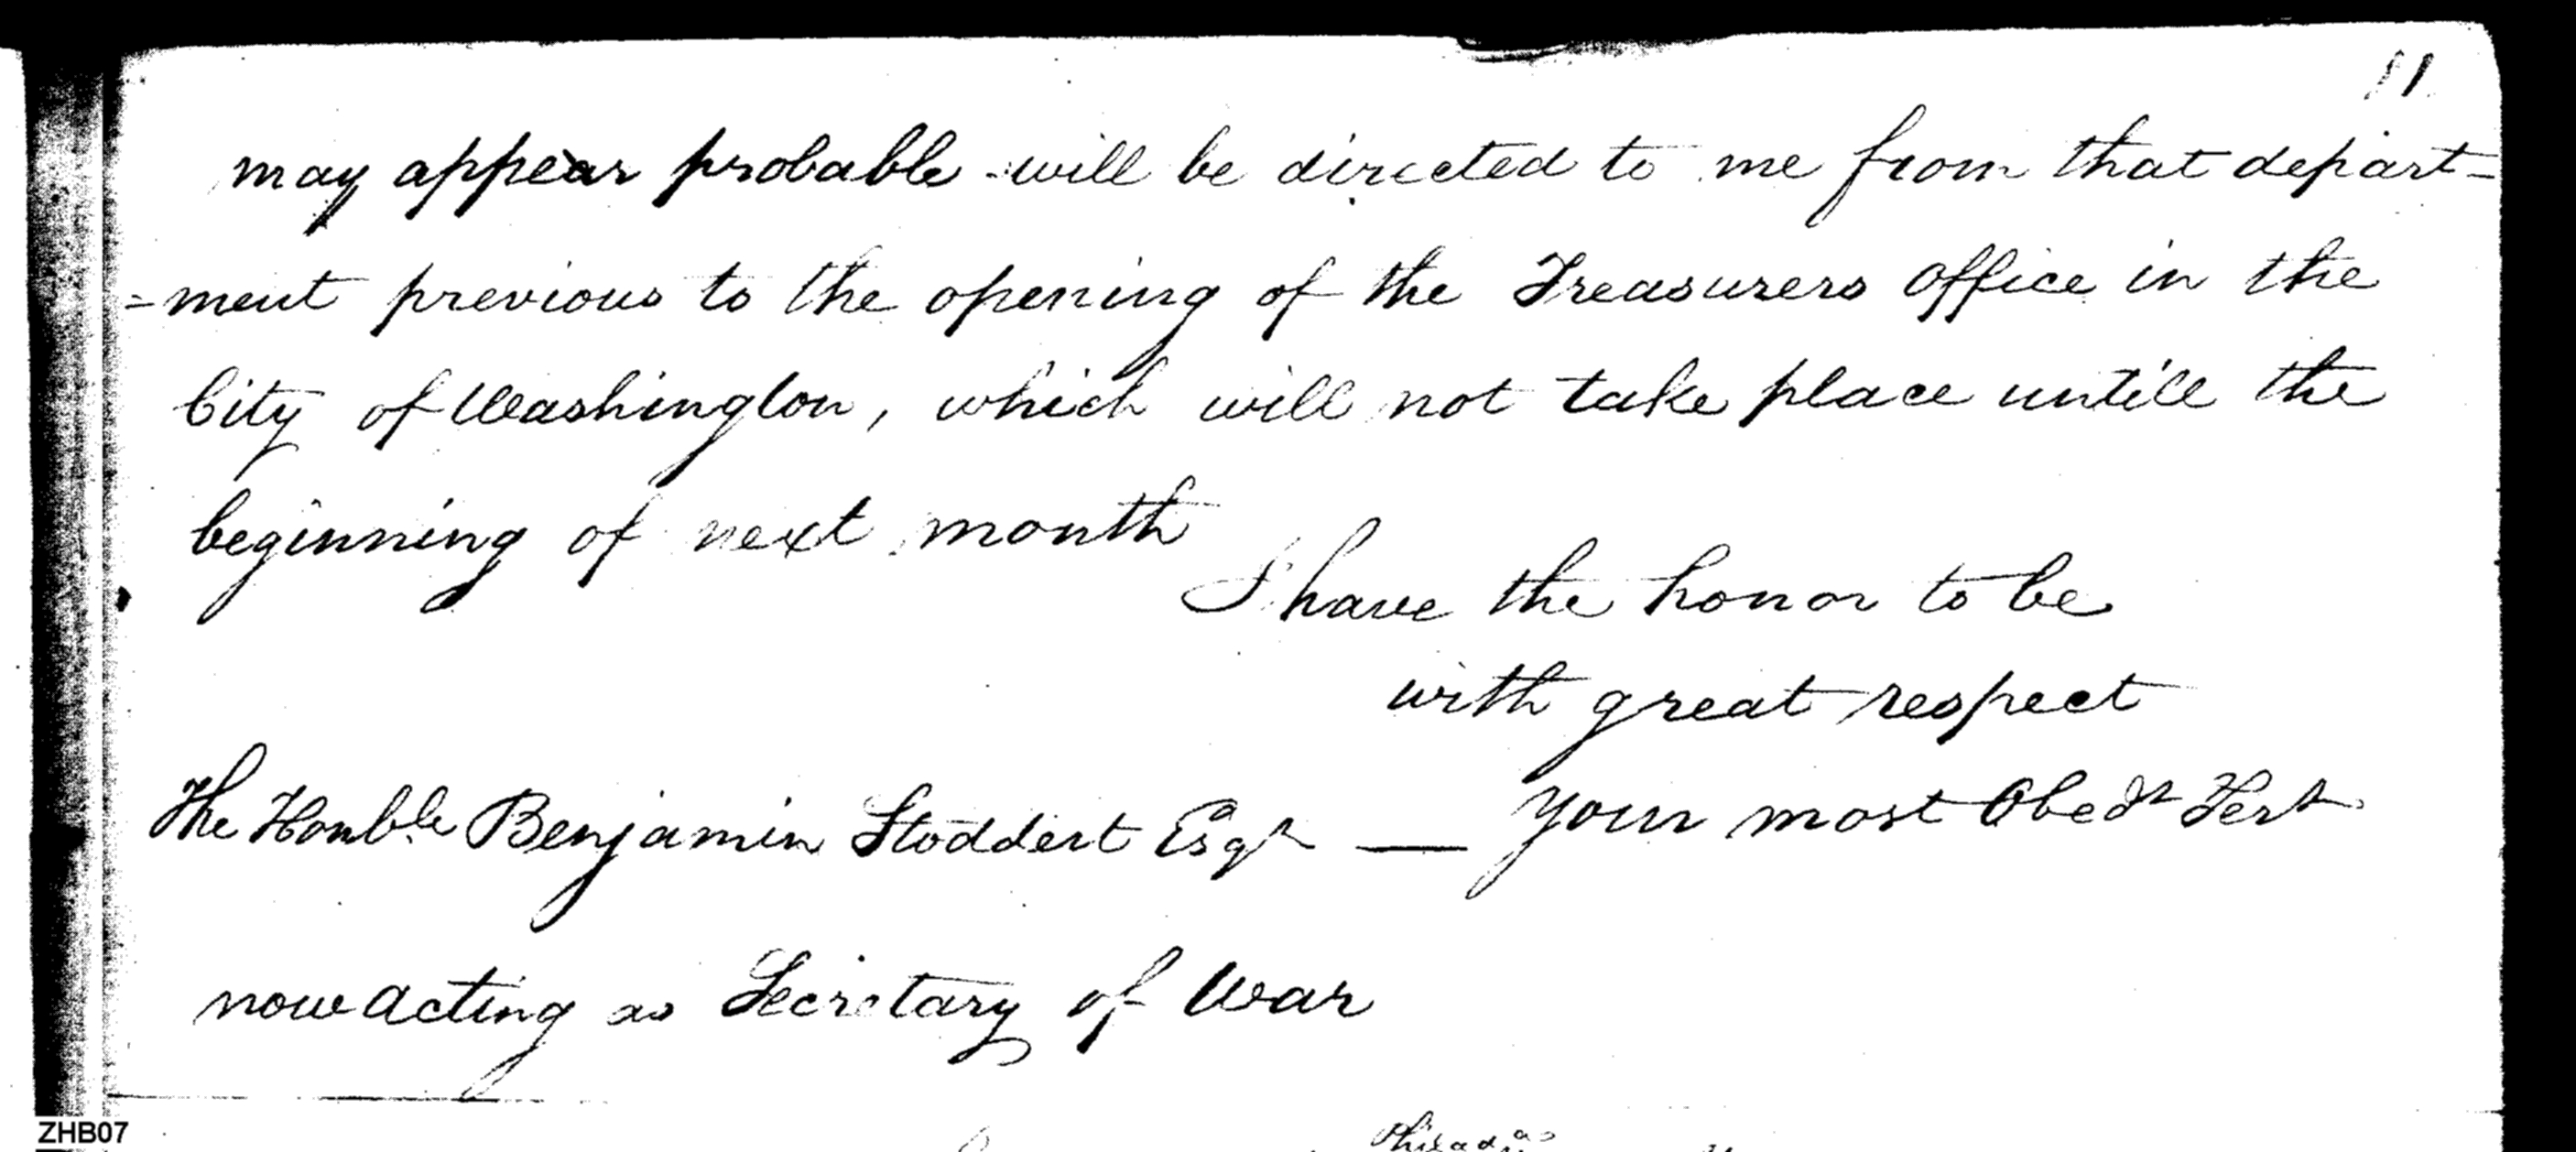 11
may appear probable will be directed to me from that depart=
=ment previous to the opening of the Treasurers Office in the
City of Washington, which will not take place untill the
beginning of next month
I have the honor to be
with great respect
The Honble Benjamin Stoddert Esqr — Your most Obedt Sert
now acting as Secretary of War
ZHB07